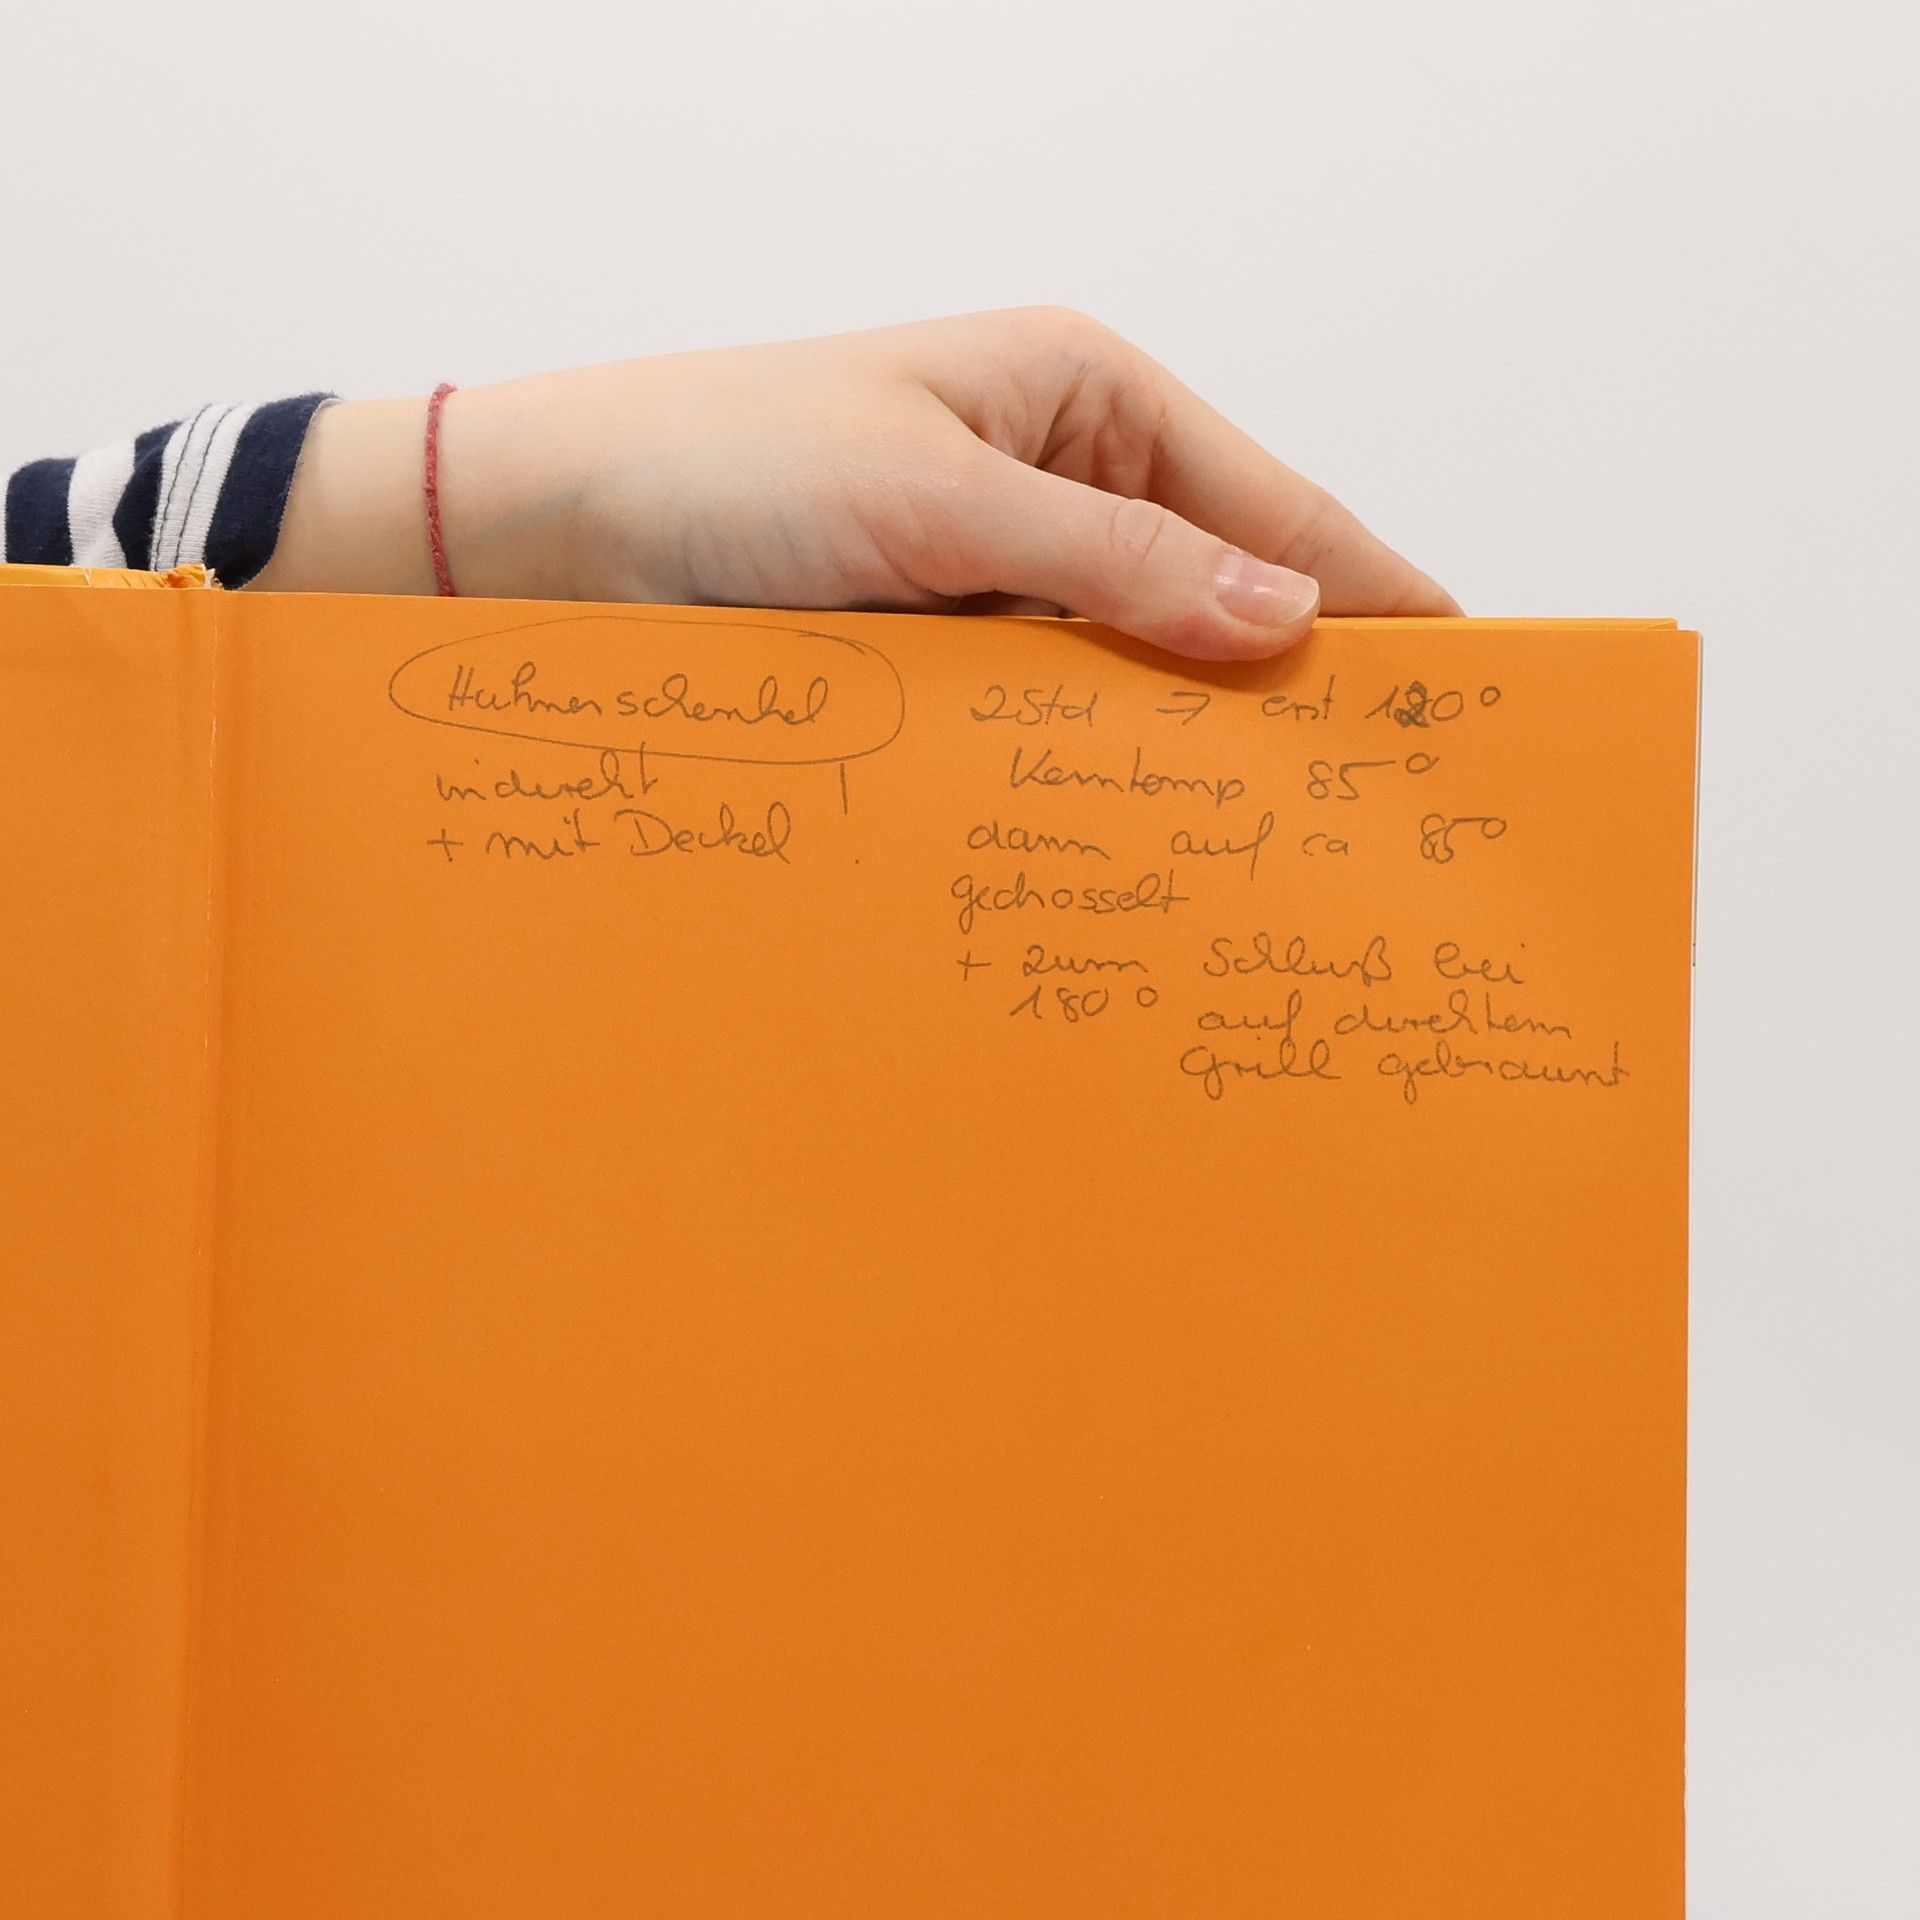 Hühnerschenkel
indirekt
+ mit Deckel !
2 Std → erst 120°
Kerntemp 85°
dann auf ca 85°
gedrosselt
+ zum Schluß bei
180° auf direktem
Grill gebräunt